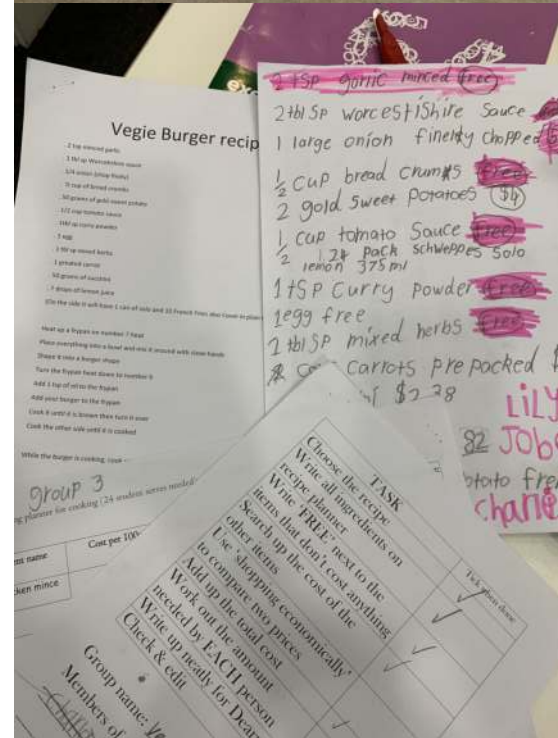 Vegie Burger recip
2 tsp minced garlic
1 tbl sp Worcestshire sauce
1/4 onion (chop finely)
cup of bread crumbs
50 grams of gold sweet potato
1/2 cup tomato sauce
tbl sp curry powder
1 egg
1 tbl sp mixed herbs
1 grated carrot
50 grams of zucchini
7 drops of lemon juice
(On the side it will have 1 can of solo and 10 French fries
Heat up a frypan on number 7 heat
Place everything into a bowl and mix it around with clean hands
Shape it into a burger shape
Turn the frypan heat down to number 6
Add 1 tsp of oil to the frypan
Add your burger to the frypan
Cook it until it is brown then turn it over
Cook the other side until it is cooked
While the burger is cooking, cook
group 3
planner for cooking (24 student serves needed
nt name
Cost per 100
ken mince
2 tsp garlic minced free
2 tbl sp worcestishire sauce
1 large onion finelty chopped
1/2 cup bread crumbs free
2 gold sweet potatoes $4
1/2 cup tomato sauce free
1 24 pack schweppes solo
lemon 375 ml
1 tsp curry powder free
1 egg free
2 tbl sp mixed herbs free
carrots pre packed $
$2.38
LiLY
82 JOb
otato free
chane
TASK
Tick when done
Choose the recipe
Write all ingredients on
recipe planner
Write 'FREE' next to the
items that don't cost anything
Search up the cost of the
other items
Use 'shopping economically'
to compare two prices
Add up the total cost
Work out the amount
needed by EACH person
Write up neatly for Dean
Check & edit
Group name: Ve
Members of